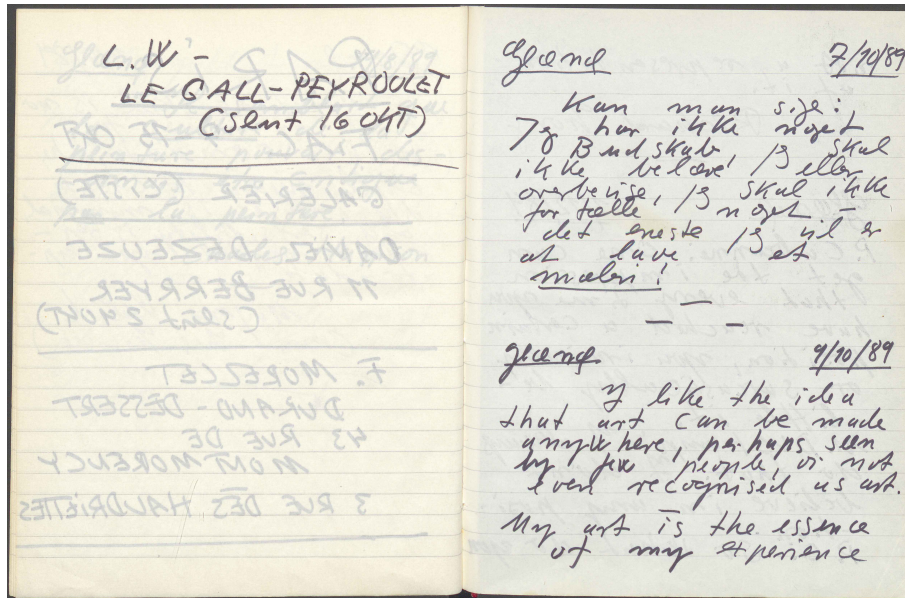 L.W -
LE GALL-PEYROULET
(slut 16 OKT)
Gland 7/10/89
Kan man sige:
Jeg har ikke noget
Budskab, jeg skal
ikke belære eller
overbevise, jeg skal ikke
fortælle noget -
det eneste jeg vil er
at lave et
maleri!
Gland 9/10/89
I like the idea
that art can be made
anywhere, perhaps seen
by few people, or not
even recognised as art.
My art is the essence
of my experience